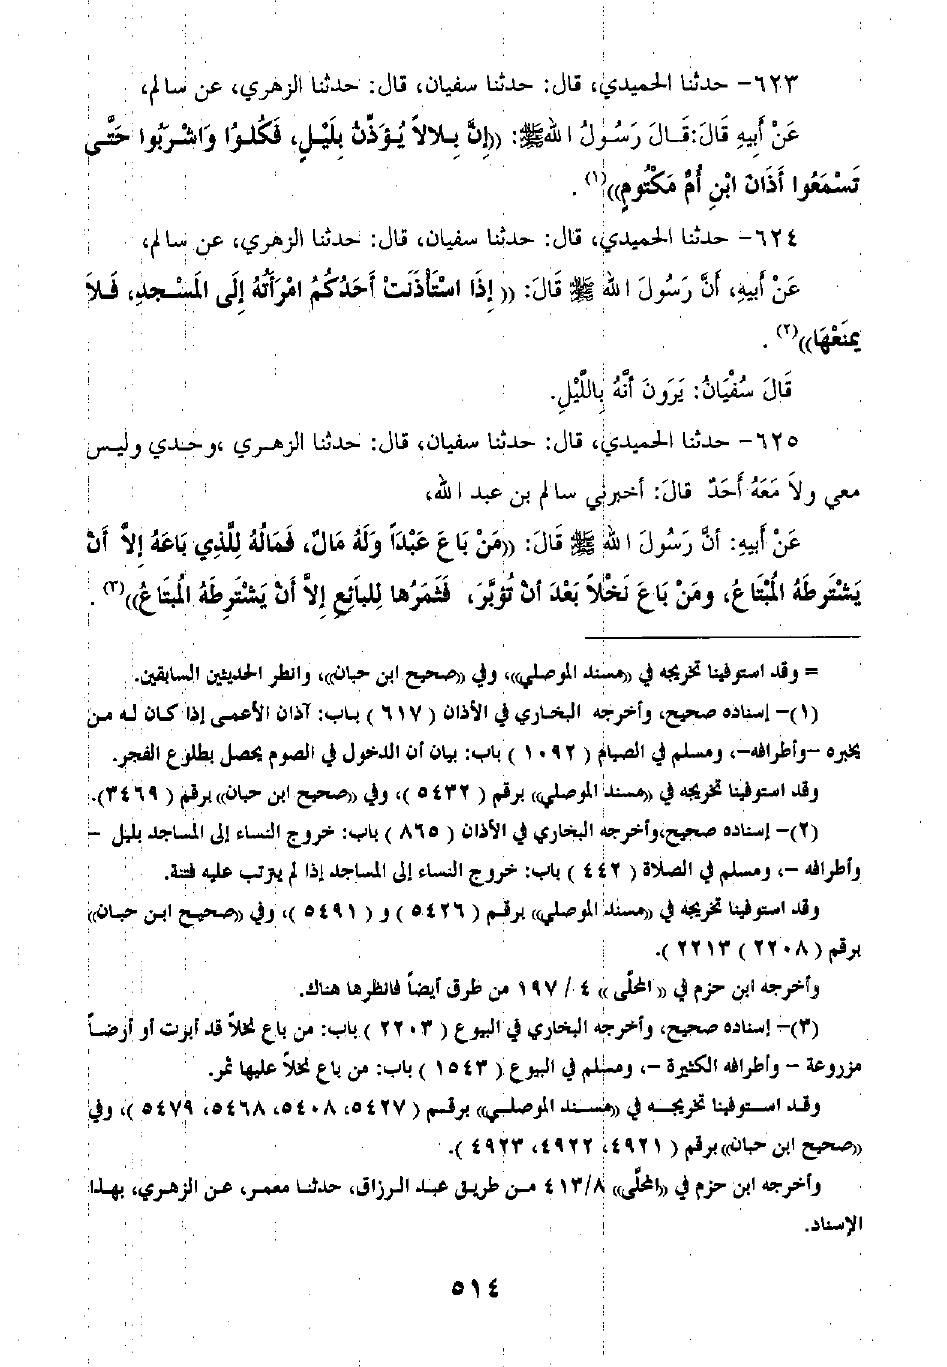 ٦٢٣- حدثنا الحميدي، قال: حدثنا سفيان، قال: حدثنا الزهري، عن سالم،
عَنْ أَبِيهِ قَالَ: قَالَ رَسُولُ اللهﷺ: ((إِنَّ بِلالاً يُؤَذِّنُ بِلَيْلٍ، فَكُلوُا وَاشْرَبُوا حَتَّى
تَسْمَعُوا أَذَانَ ابْنِ أُمِّ مَكْتُومٍ))(١) .
٦٢٤- حدثنا الحميدي، قال: حدثنا سفيان، قال: حدثنا الزهري، عن سالم،
عَنْ أَبيهِ، أَنَّ رَسُولَ اللهِ ﷺ قَالَ: (( إِذَا اسْتَأْذَنَتْ أَحَدُكُمُ امْرَأَتُهُ إِلَى الْمَسْجِدِ، فَلاَ
يمنَعْهَا))(٢) .
قَالَ سُفْيَانُ: يَرَونَ أَنَّهُ بِاللَّيْلِ.
٦٢٥- حدثنا الحميدي، قال: حدثنا سفيان، قال: حدثنا الزهري ،وحدي وليس
معي ولاَ مَعَهُ أَحَدٌ قالَ: أخبرني سالم بن عبد الله،
عَنْ أَبِيهِ: أَنَّ رَسُولَ اللهِ ﷺ قَالَ: ((مَنْ بَاعَ عَبْدَاً وَلَهُ مَالٌ، فَمَالُهُ لِلَّذِي بَاعَهُ إلاَّ أَنْ
يَشْتَرِطَهُ الْمُبْتَاعُ، ومَنْ بَاعَ نَخْلاً بَعْدَ أنْ تُؤَبَّرَ، فَثَمَرُها لِلبَائِعِ إلاَّ أَنْ يَشْتَرِطَهُ الْمبَتَاعُ))(٣) .
= وقد استوفينا تخريجه في ((مسند الموصلي))، وفي ((صحيح ابن حبان))، وانظر الحديثين السابقين.
(١)- إسناده صحيح، وأخرجه البخاري في الأذان ( ٦١٧ ) باب: آذان الأعمى إذا كان له من
يخبره -وأطرافه-، ومسلم في الصيام ( ١٠٩٢ ) باب: بيان أن الدخول في الصوم يحصل بطلوع الفجر.
وقد استوفينا تخريجه في ((مسند الموصلي)) برقم ( ٥٤٣٢ )، وفي ((صحيح ابن حبان)) برقم ( ٣٤٦٩).
(٢)- إسناده صحيح،وأخرجه البخاري في الأذان ( ٨٦٥ ) باب: خروج النساء إلى المساجد بليل -
وأطرافه -، ومسلم في الصلاة ( ٤٤٢ ) باب: خروج النساء إلى المساجد إذا لم يترتب عليه فتنة.
وقد استوفينا تخريجه في ((مسند الموصلي)) برقم ( ٥٤٢٦ ) و ( ٥٤٩١ )، وفي ((صحيح ابن حبان))
برقم ( ٢٢٠٨ ) ٢٢١٣ ).
وأخرجه ابن حزم في (( المحلَّى )) ٤ / ١٩٧ من طرق أيضاً فانظرها هناك.
(٣)- إسناده صحيح، وأخرجه البخاري في البيوع ( ٢٢٠٣ ) باب: من باع نخلاً قد أبرت أو أرضاً
مزروعة - وأطرافه الكثيرة -، ومسلم في البيوع ( ١٥٤٣ ) باب: من باع نخلاً عليها ثمر.
وقد استوفينا تخريجه في ((مسند الموصلي)) برقم ( ٥٤٢٧، ٥٤٠٨، ٥٤٦٨، ٥٤٧٩ )، وفي
((صحيح ابن حبان)) برقم ( ٤٩٢١، ٤٩٢٢، ٤٩٢٣ ).
وأخرجه ابن حزم في ((المحلَّى)) ٤١٣/٨ من طريق عبد الرزاق، حدثنا معمر، عن الزهري، بهذا
الإسناد.
٥١٤